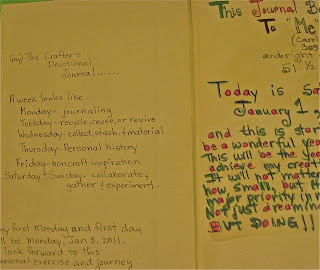 Gay) The Crafter's
Devotional
Journal......
A week looks like...
Monday- journaling
Tuesday- recycle, reuse, or revive
Wednesday- collect, stash, & material
Thursday- Personal history
Friday- noncraft inspiration
Saturday & Sunday- collaborate,
gather & experiment.
my first Monday and first day
ll be Monday, Jan 3, 2011.
look forward to this
ersonal exercise and journey.
This Journal Be
To "Me"
(Carol
309
and right
51 1/2
Today is Sa
January 1,
and this is start
be a wonderful yea
This will be the yea
achieve my creati
It will not matter
how small, but it
major priority in m
Not just dreamin
BUT DOING!!